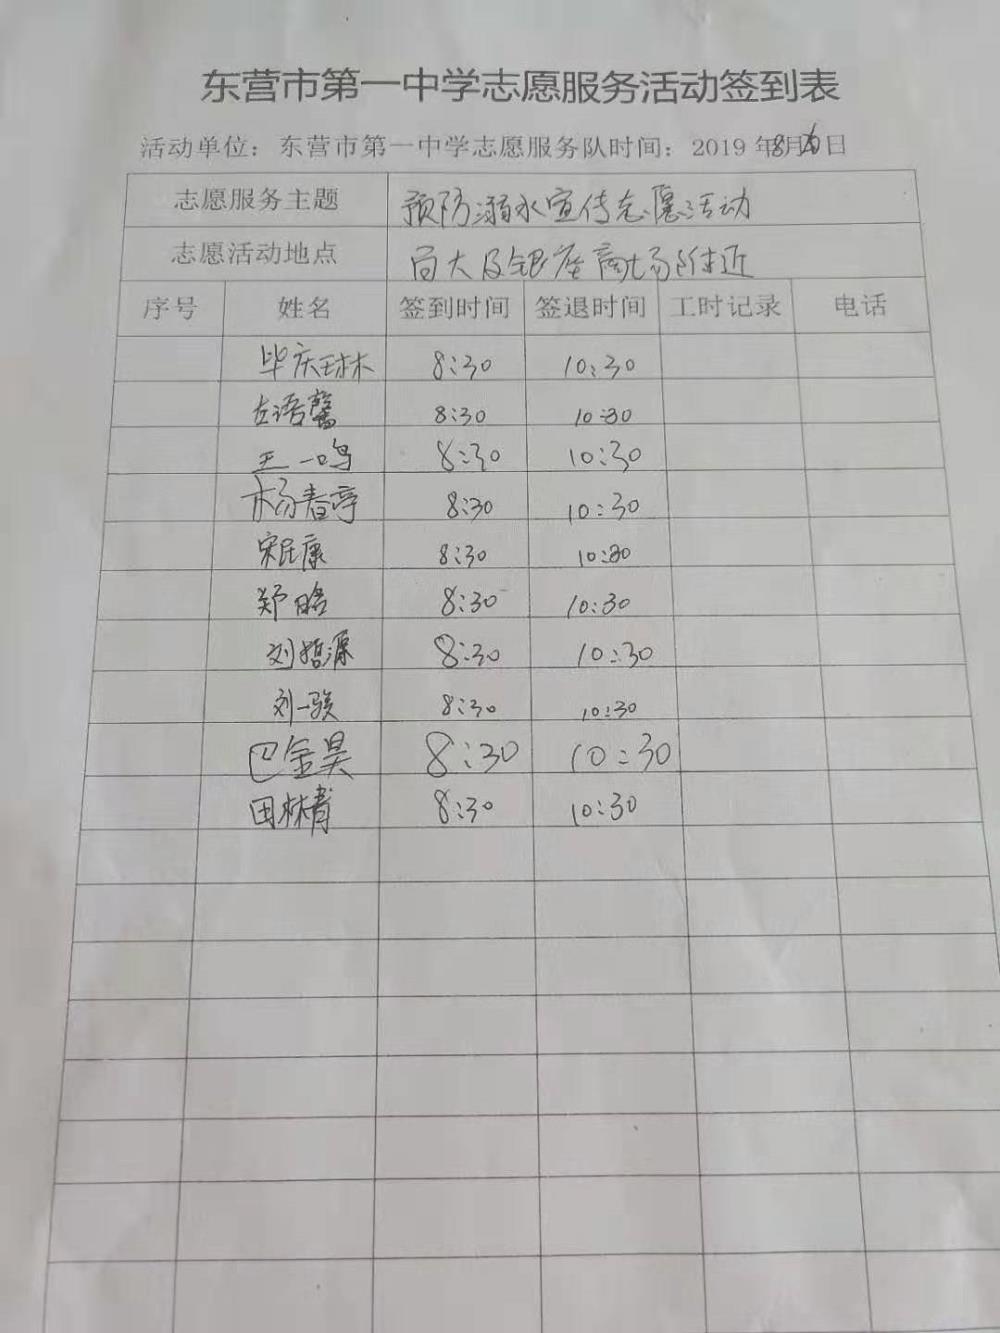 东营市第一中学志愿服务活动签到表
活动单位：东营市第一中学志愿服务队时间：2019 年8月日
志愿服务主题 预防溺水宣传志愿活动
志愿活动地点 百大及银座商场附近
序号 姓名 签到时间 签退时间 工时记录 电话
毕庆琳 8:30 10:30
左语馨 8:30 10:30
王一鸣 8:30 10:30
杨春亭 8:30 10:30
宋民康 8:30 10:30
郑晗 8:30 10:30
刘哲源 8:30 10:30
刘一骏 8:30 10:30
巴金昊 8:30 10:30
田林青 8:30 10:30